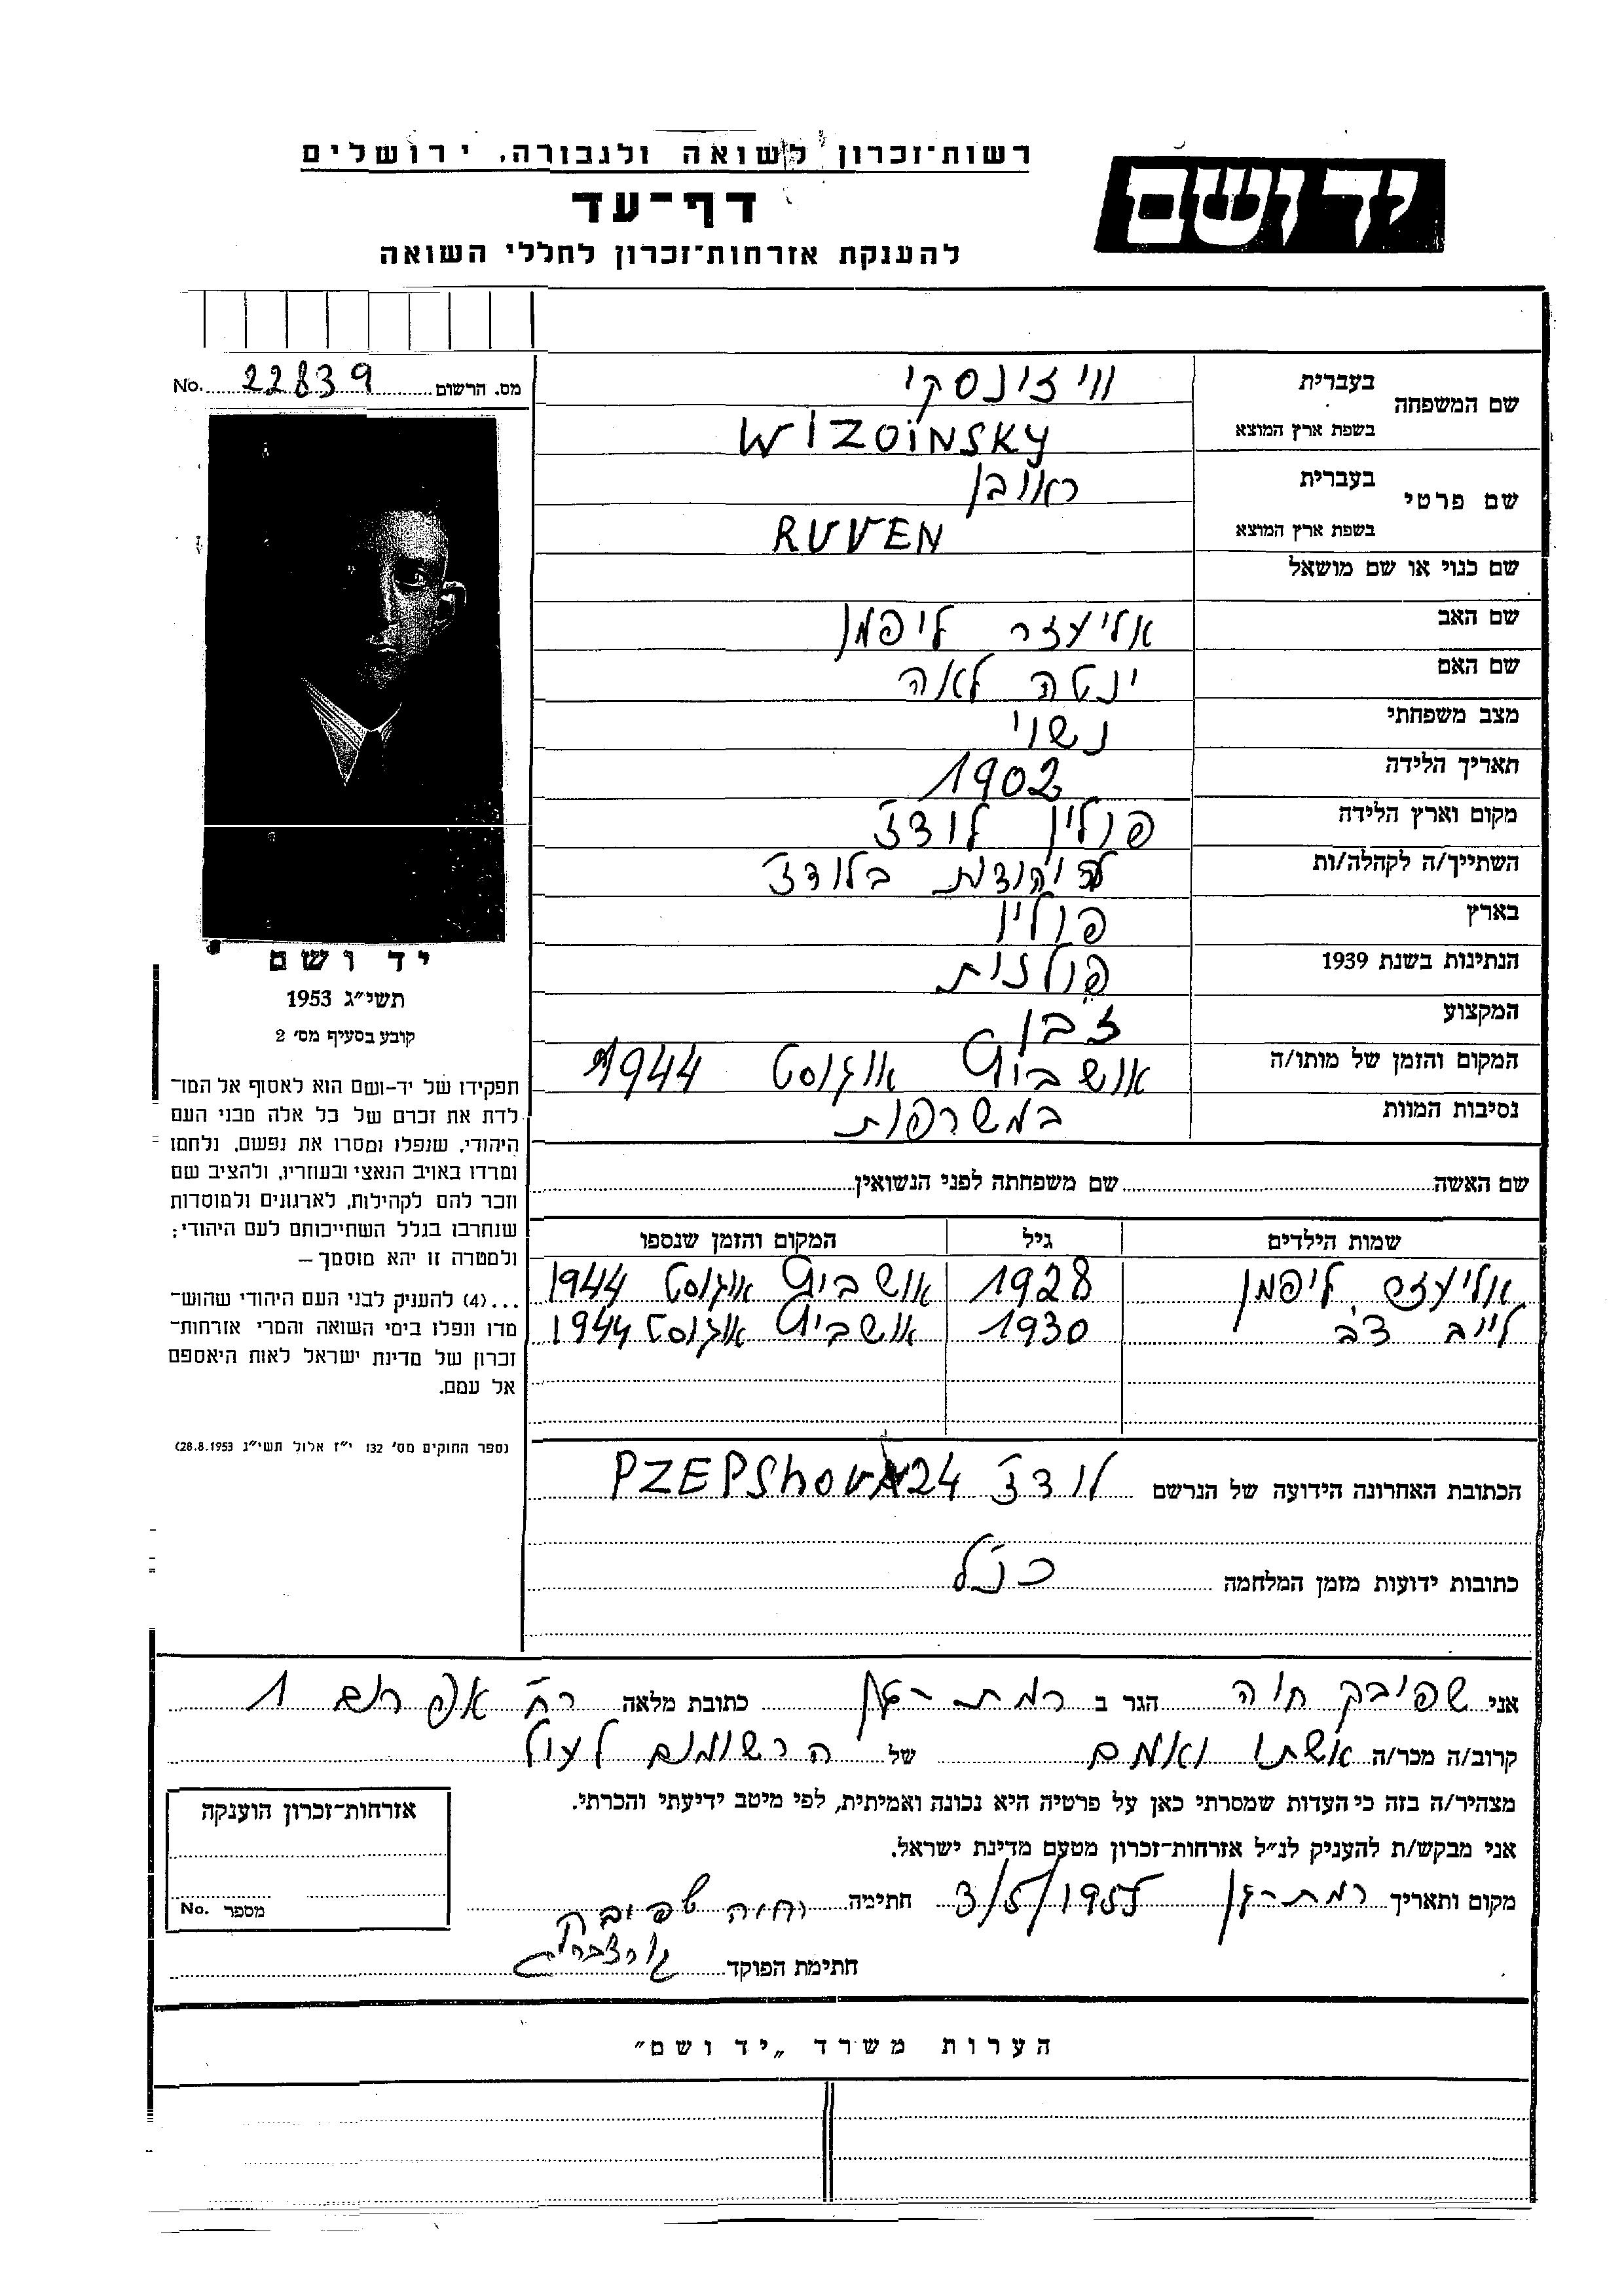 רשות־זכרון לשואה ולגבורה, ירושלים
יד ושם
דף־עד
להענקת אזרחות־זכרון לחללי השואה
מס. הרשום 22839 No.
שם המשפחה
בעברית ווי זינסקי
בשפת ארץ המוצא WIZOINSKY
שם פרטי
בעברית ראובן
בשפת ארץ המוצא RUVEN
שם כנוי או שם מושאל
שם האב אליעזר ליפמן
שם האם ינטה לאה
מצב משפחתי נשוי
תאריך הלידה 1902
מקום וארץ הלידה פולין לודז׳
השתייך/ה לקהלה/ות בלודז׳
בארץ פולין
הנתינות בשנת 1939 פולנית
המקצוע
המקום והזמן של מותו/ה אושביץ אוגוסט 1944
נסיבות המוות במשרפות
יד ושם
תשי״ג 1953
קובע בסעיף מס׳ 2
תפקידו של יד-ושם הוא לאסוף אל המו־
לדת את זכרם של כל אלה מבני העם
היהודי, שנפלו ומסרו את נפשם, נלחמו
ומרדו באויב הנאצי ובעוזריו, ולהציב שם
וזכר להם לקהילות, לארגונים ולמוסדות
שנחרבו בגלל השתייכותם לעם היהודי:
ולמטרה זו יהא מוסמך—
...(4) להעניק לבני העם היהודי שהוש־
מדו ונפלו בימי השואה והמרי אזרחות־
זכרון של מדינת ישראל לאות היאספם
אל עמם.
(ספר החוקים מס׳ 132 י״ז אלול תשי״ג 28.8.1953)
שם האשה שם משפחתה לפני הנשואין
שמות הילדים גיל המקום והזמן שנספו
אליעזר ליפמן 1928 אושביץ אוגוסט 1944
לייב 1930 אושביץ אוגוסט 1944
הכתובת האחרונה הידועה של הנרשם לודז׳ PZEPSHOVA 24
כתובות ידועות מזמן המלחמה כנ״ל
אני שפיבק חוה הגר ב רמת-גן כתובת מלאה רח׳ 1
קרוב/ה מכר/ה אשתו ואמם של הרשומים לעיל
מצהיר/ה בזה כי העדות שמסרתי כאן על פרטיה היא נכונה ואמיתית, לפי מיטב ידיעתי והכרתי.
אני מבקש/ת להעניק לנ״ל אזרחות־זכרון מטעם מדינת ישראל.
מקום ותאריך רמת-גן 3/5/1955 חתימה חיה שפיבק
חתימת הפוקד
אזרחות־זכרון הוענקה
מספר No.
הערות משרד „יד ושם״